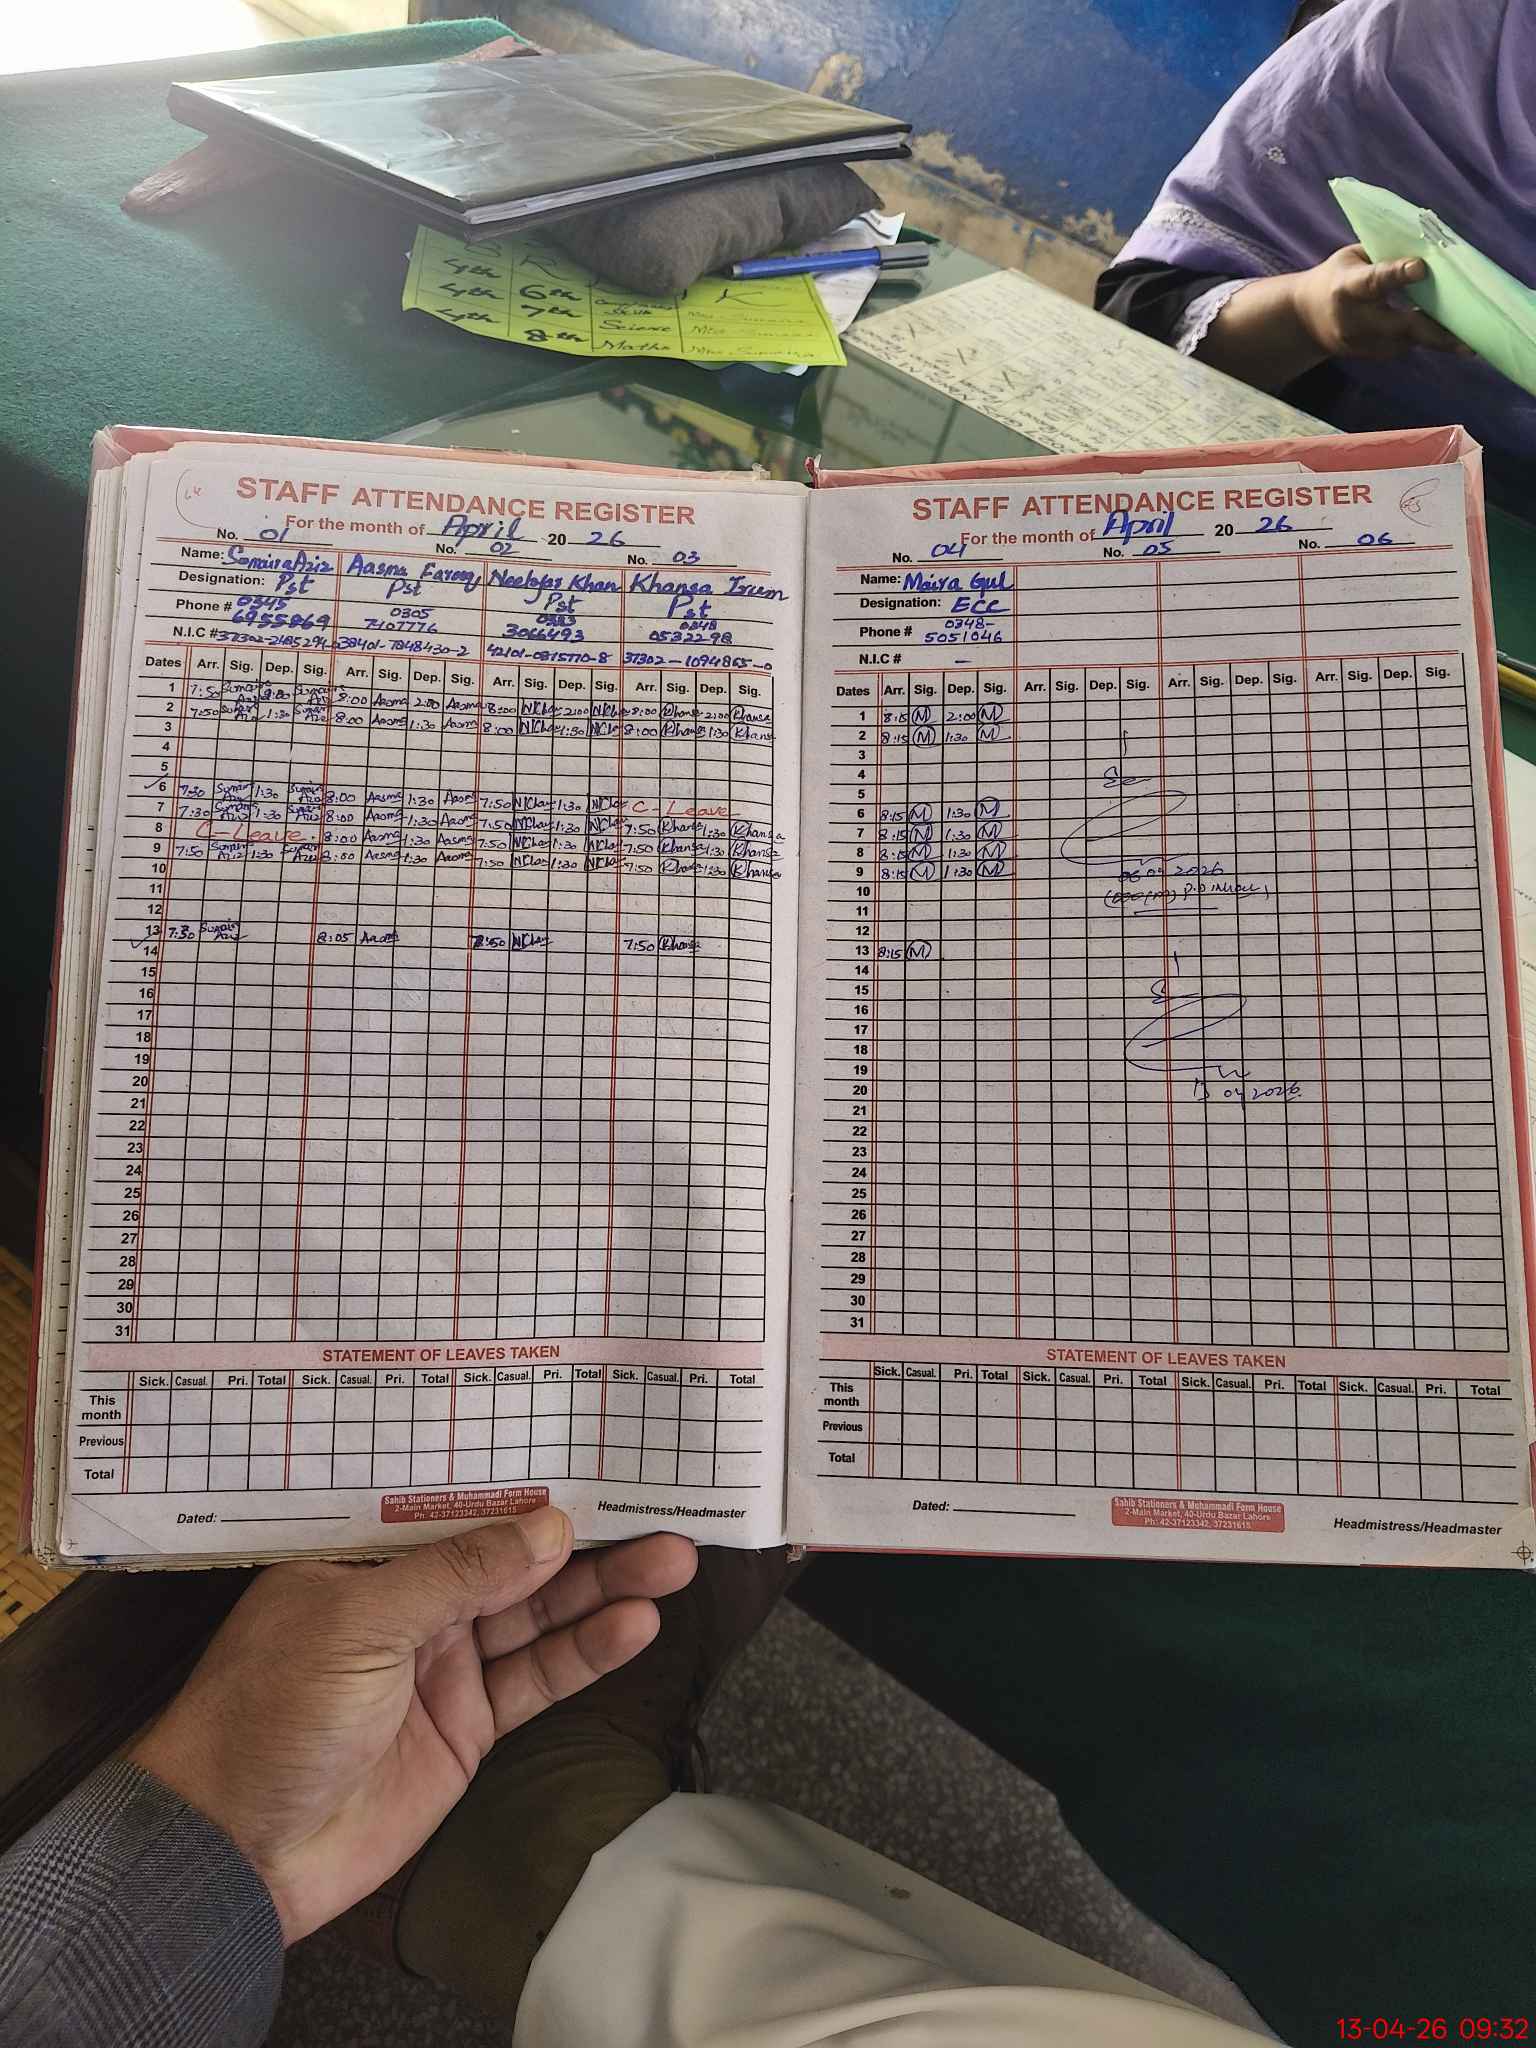 4th 6th
4th 7th Science
4th 8th Maths
STAFF ATTENDANCE REGISTER
For the month of April 2026
No. 01 No. 02 No. 03
Name: Sumaira Aziz Aasma Farooq Neelofar Khan Khansa Irum
Designation: Pst Pst Pst Pst
Phone # 0345 0305 0348
6955869 7407776 3066493 0532298
N.I.C # 42101-0815770-8 37302-1094865-0
Dates Arr. Sig. Dep. Sig. Arr. Sig. Dep. Sig. Arr. Sig. Dep. Sig. Arr. Sig. Dep. Sig.
1 7:50 Sumaira Aziz 2:00 Sumaira Aziz 8:00 Aasma 2:00 Aasma 8:00 NKhan 2:00 NKhan 8:00 Khansa 2:00 Khansa
2 7:50 Sumaira Aziz 1:30 Sumaira Aziz 8:00 Aasma 1:30 Aasma 8:00 NKhan 1:30 NKhan 8:00 Khansa 1:30 Khansa
3
4
5
6 7:30 Sumaira Aziz 1:30 Sumaira Aziz 8:00 Aasma 1:30 Aasma 7:50 NKhan 1:30 NKhan C-Leave
7 7:30 Sumaira Aziz 1:30 Sumaira Aziz 8:00 Aasma 1:30 Aasma 7:50 NKhan 1:30 NKhan 7:50 Khansa 1:30 Khansa
8 C-Leave. 8:00 Aasma 1:30 Aasma 7:50 NKhan 1:30 NKhan 7:50 Khansa 1:30 Khansa
9 7:50 Sumaira Aziz 1:30 Sumaira Aziz 8:00 Aasma 1:30 Aasma 7:50 NKhan 1:30 NKhan 7:50 Khansa 1:30 Khansa
10
11
12
13 7:30 Sumaira Aziz 8:05 Aasma 7:50 NKhan 7:50 Khansa
14
15
16
17
18
19
20
21
22
23
24
25
26
27
28
29
30
31
STATEMENT OF LEAVES TAKEN
Sick. Casual. Pri. Total Sick. Casual. Pri. Total Sick. Casual. Pri. Total Sick. Casual. Pri. Total
This month
Previous
Total
Dated:
Sahib Stationers & Muhammadi Form House
2-Main Market, 40-Urdu Bazar Lahore
Ph: 42-37123342, 37231615
Headmistress/Headmaster
STAFF ATTENDANCE REGISTER
For the month of April 2026
No. 04 No. 05 No. 06
Name: Maira Gul
Designation: ECC
Phone # 0348-
5051046
N.I.C # -
Dates Arr. Sig. Dep. Sig. Arr. Sig. Dep. Sig. Arr. Sig. Dep. Sig. Arr. Sig. Dep. Sig.
1 8:15 M 2:00 M
2 8:15 M 1:30 M
3
4
5
6 8:15 M 1:30 M
7 8:15 M 1:30 M
8 8:15 M 1:30 M
9 8:15 M 1:30 M
06 04 2026
10
11
12
13 8:15 M
14
15
16
17
18
19
20
13 04 2026
21
22
23
24
25
26
27
28
29
30
31
STATEMENT OF LEAVES TAKEN
Sick. Casual. Pri. Total Sick. Casual. Pri. Total Sick. Casual. Pri. Total Sick. Casual. Pri. Total
This month
Previous
Total
Dated:
Sahib Stationers & Muhammadi Form House
2-Main Market, 40-Urdu Bazar Lahore
Ph: 42-37123342, 37231615
Headmistress/Headmaster
13-04-26 09:32